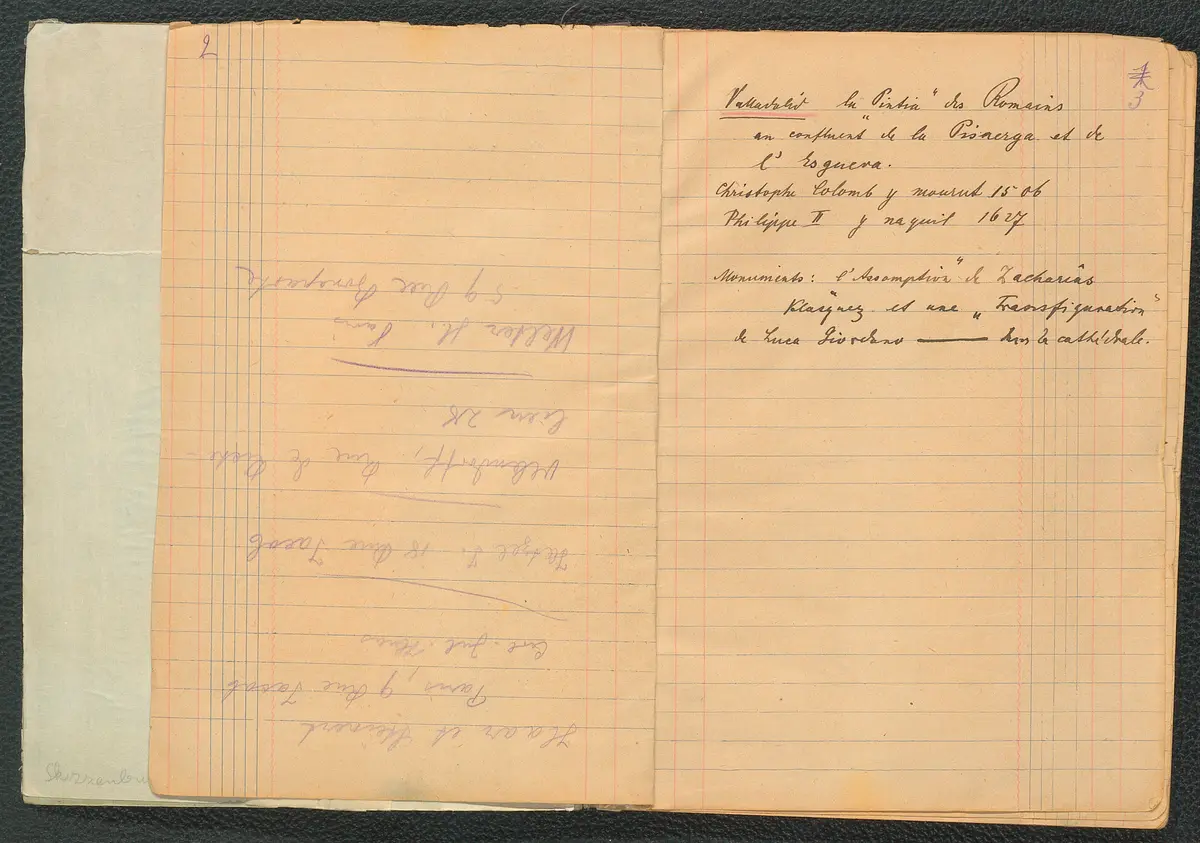 2
Haar et Steinert
Paris, 9 Rue Jacob
Hetzel J. 18 Rue Jacob
Ollendorff, Rue de
28
Welter H. Paris
59 Rue Bonaparte
3
Valladolid la "Pintia" des Romains
au confluent de la Pisuerga et de
l'Esgueva.
Christophe Colomb y mourut 1506
Philippe II y naquit 1627
Monuments: l'Assomption" de Zacharias
Velasquez et une „Transfiguration"
de Luca Giordano —— dans la cathédrale.
Skizzenbu